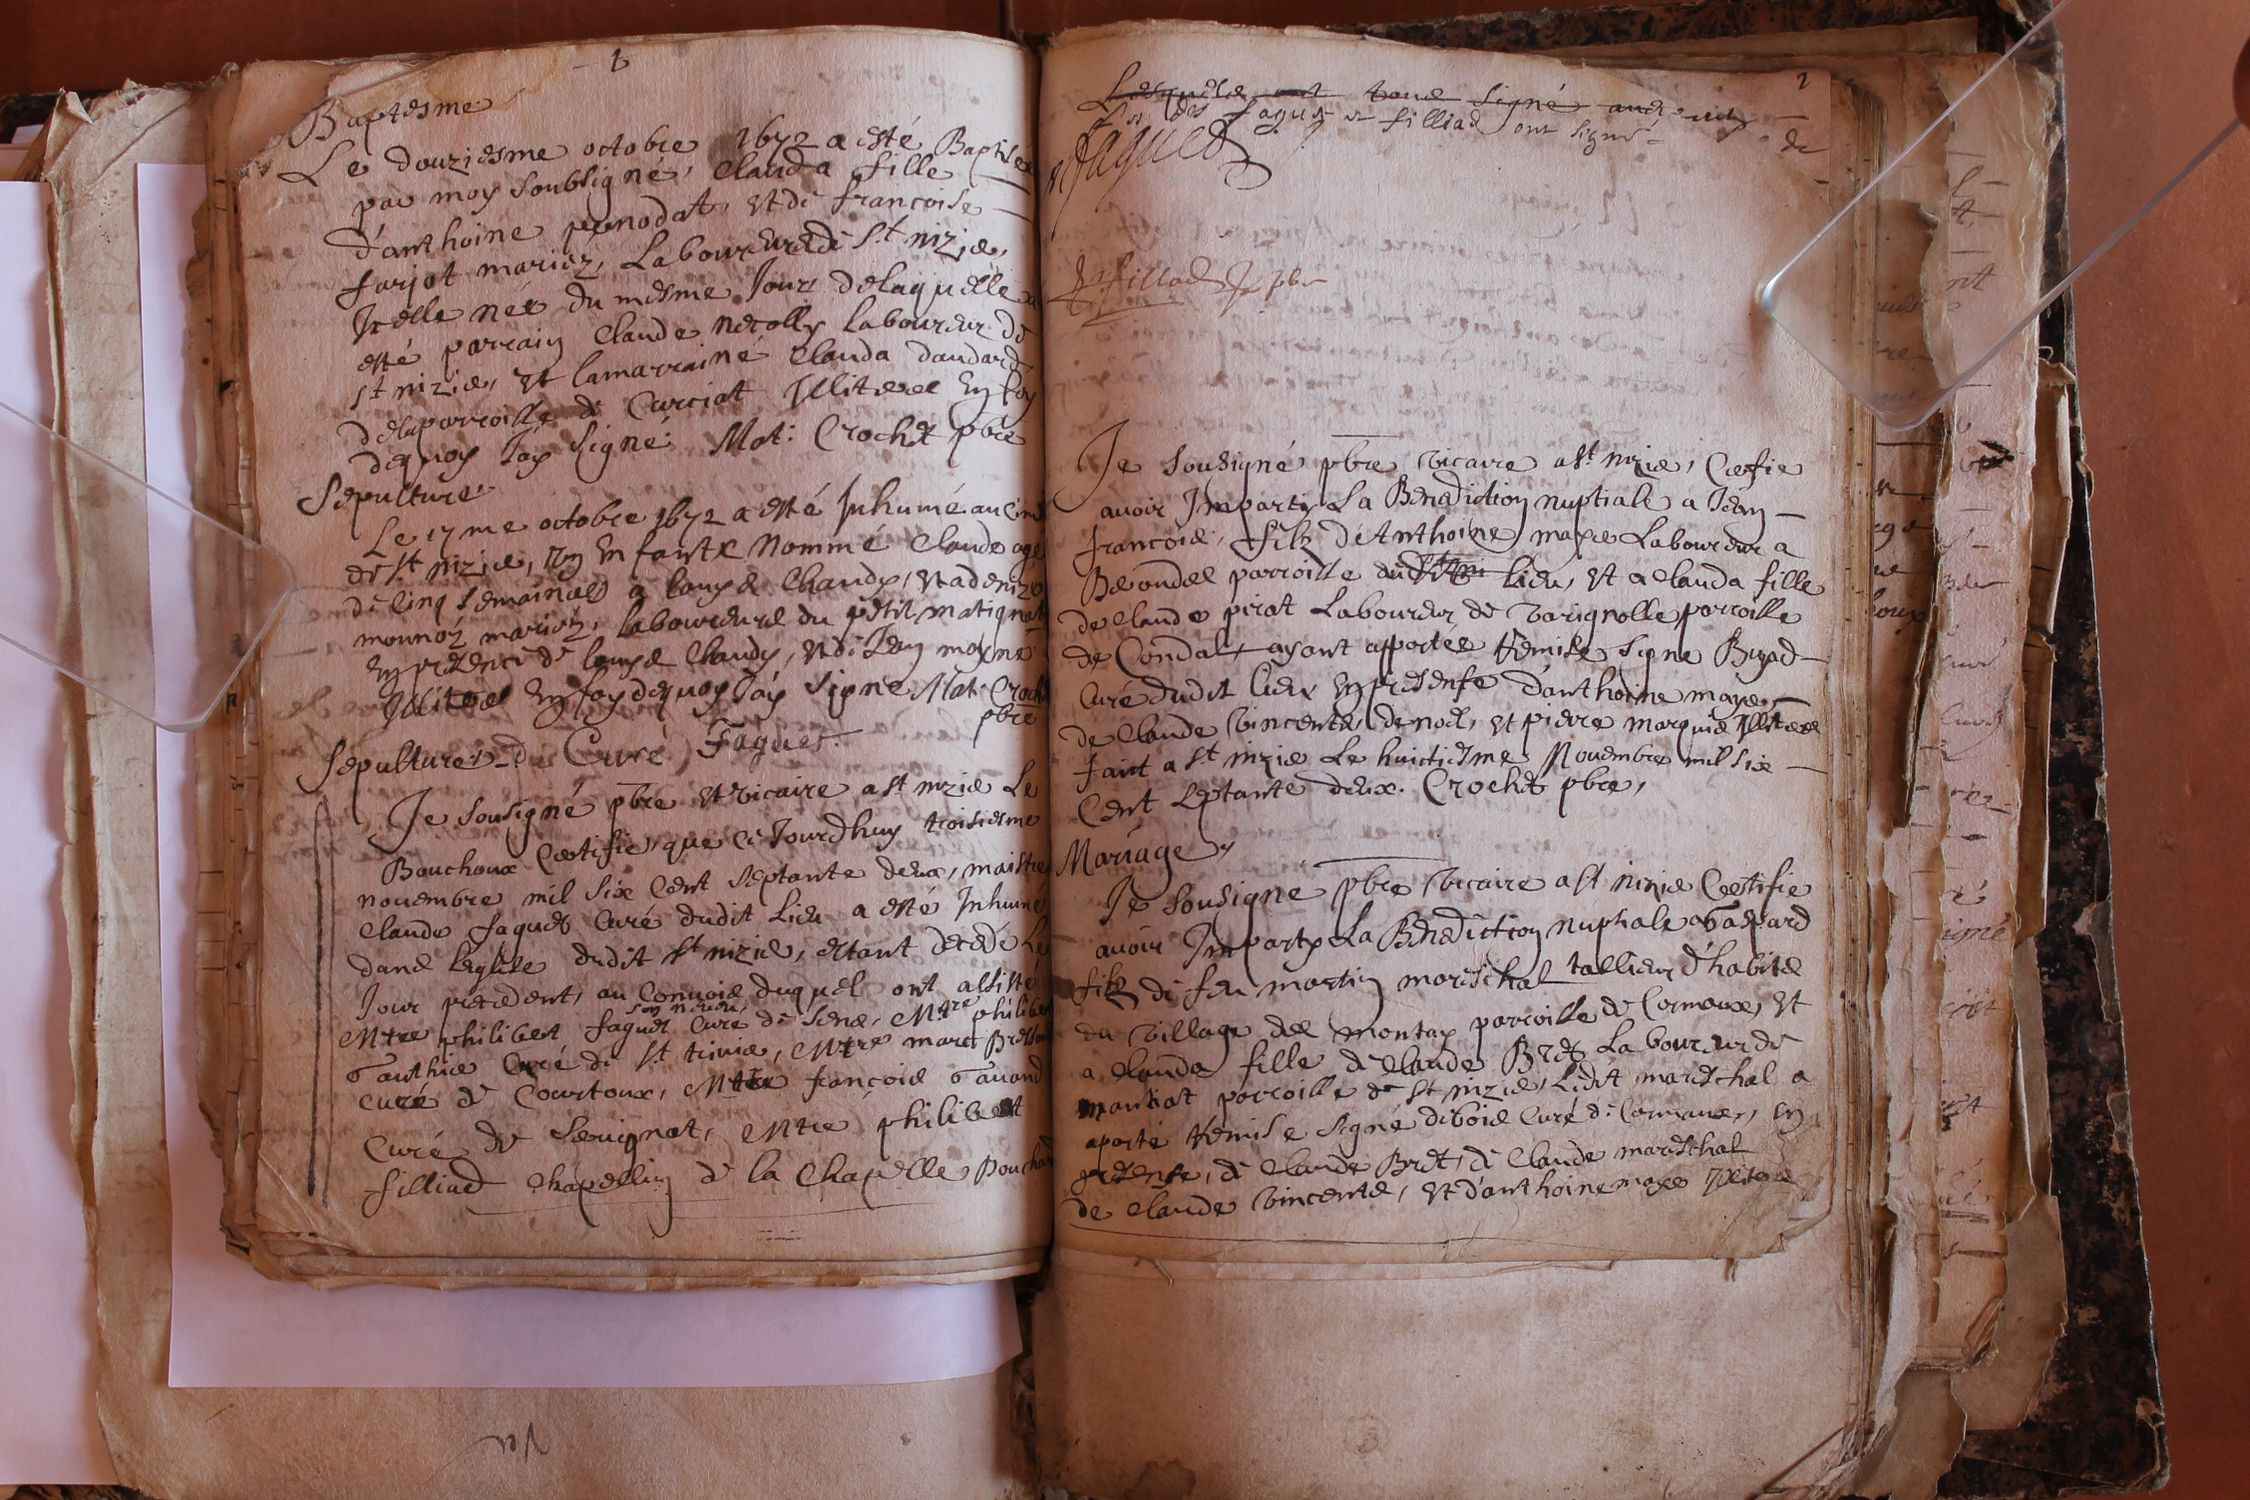 1
Baptesme
Le douziesme octobre 1672 a esté Baptisée
par moy soubsigné, Clauda fille
d'anthoine pernodat, et de francoise
farjot mariéz, Laboureurs de St. nizie,
Icelle née du mesme Jour, de laquelle a
esté parrain Claude Necolly laboureur de
St nizie, et la marrainé Clauda daudard
de la parroisse de Curciat Illiteres En foy
de quoy J'ay signé. Mat: Crochet pbre
Sepulture
Le 17me octobre 1672 a esté Inhumé au Cime
de St. nizie, un Enfant nommé Claude agé
de cinq semaines a Louys Chandy, et a denize
monnoz mariéz, laboureurs du petit matignat
En presence de Louys Chandy, et de Jean moyne
Illiteres En foy de quoy J'ay signé Mat: Croch
pbre
Sepulture du Curé Faguet
Je sousigné pbre et vicaire a St nizie Le
Bouchoux Certifie, que ce Jourdhuy troisiesme
novembre mil six Cent septante deux, maistre
Claude faguet Curé dudit Lieu a esté Inhumé
dans leglise dudit St nizie, estant decedé Le
Jour precedent, au Convoie duquel ont assisté
son nepveu
Mtre philibert faguet Curé de , Mtre philibe
Gauthie Curé de St trivie, Mtre marc
Curé de Courtoux, Mtre francois Gavand
Curé de Servignat, Mtre philibert
filliad Chapellin de la Chapelle Pouchar
2
Lesquels ont tous signé avec moy
Les dts faguet et filliad ont signé de
faguet
filliad pbr
Je sousigné pbre vicaire a St. nizie, Certifie
avoir Imparty La Benediction nuptiale a Jean
francois, filz d'Anthoine maye Laboureur a
Besondes parroisse dudit lieu, et a Clauda fille
de Claude pirat Laboureur de varignolle parroisse
de Condal, ayant apportée Remise signe
Curé dudit lieu En presense d'anthoine maye,
de Claude vincent, de noel, et pierre marquis Illiteres
faict a St nizie Le huictiesme Novembre mil six
Cent septante deux. Crochet pbre,
Mariage
Je sousigne pbre vicaire a St nizie Certifie
avoir Imparty La Benediction nuptiale a Gaspard
filz de feu martin mareschal tallieur d'habits
du village des montay parroisse de Cormoux, et
a Clauda fille de Claude Bret Laboureur de
mantiat parroisse de St nizie, Ledit mareschal a
aporté Remise signé diboie Curé de Cormoux, En
presense, de Claude Bret, de Claude mareschal
de Claude vincent, et d'anthoine maye Illiteres